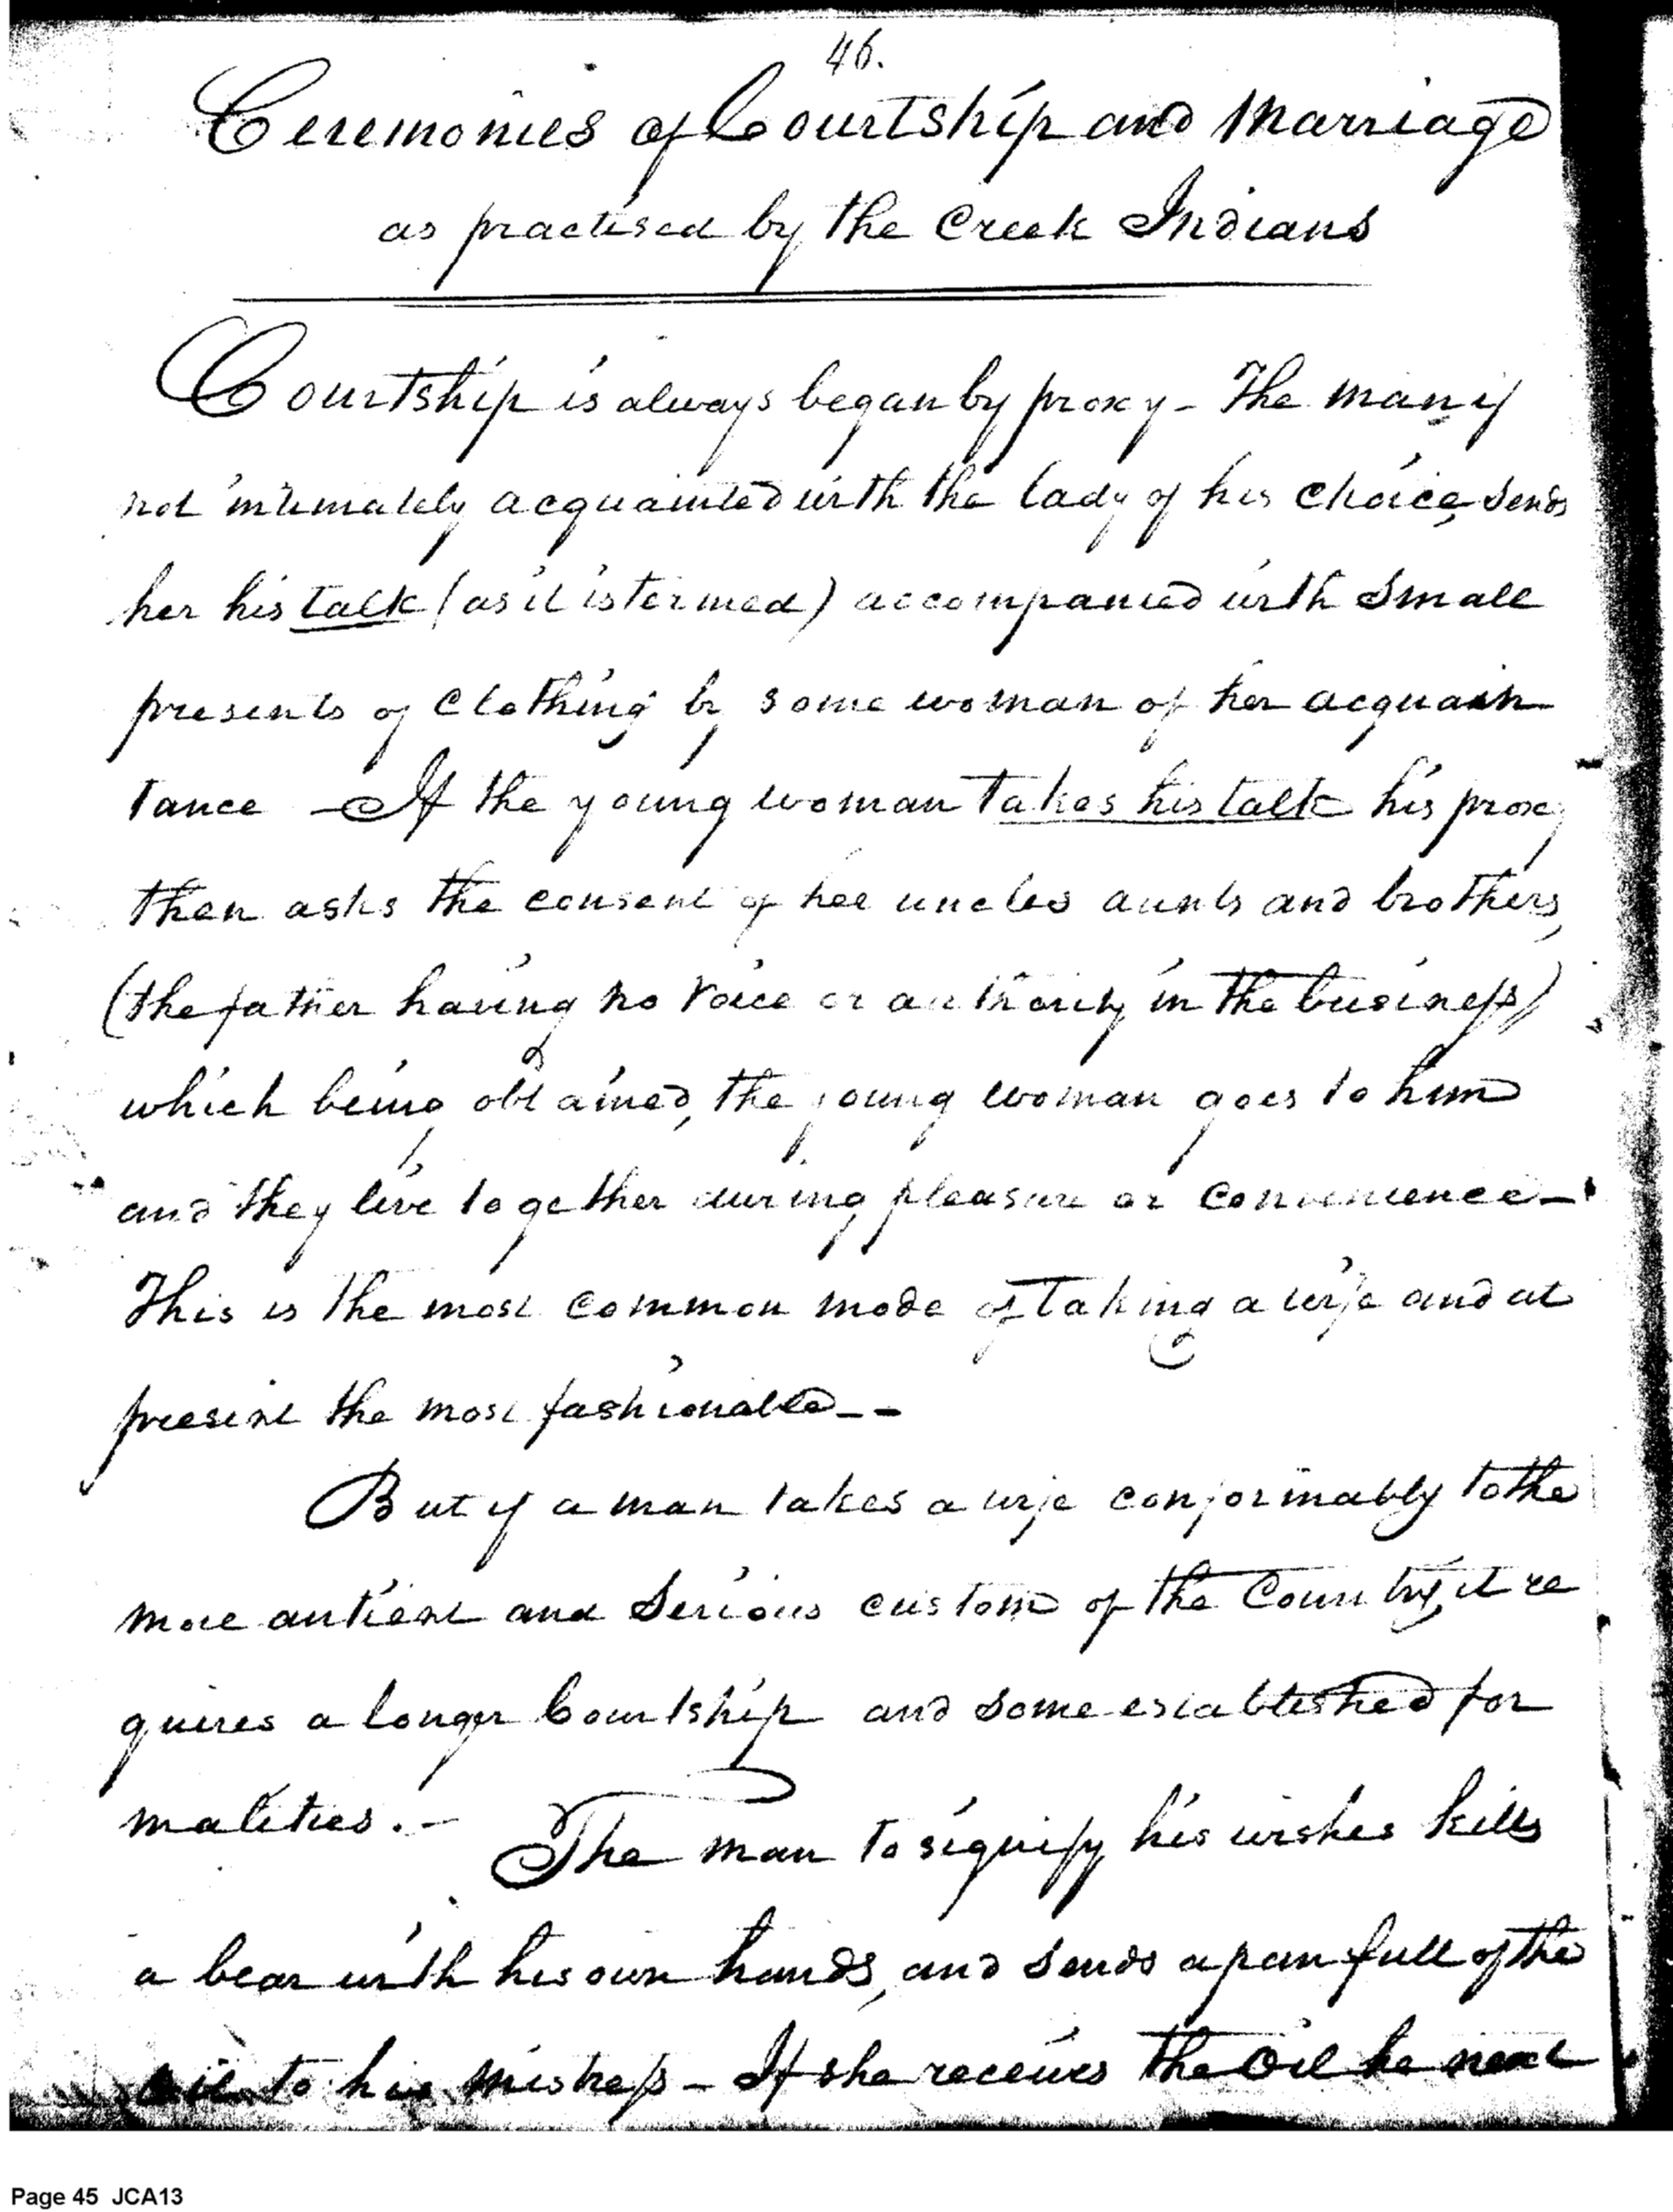 46.
Ceremonies of Courtship and Marriage
as practised by the Creek Indians
Courtship is always began by proxy - The man if
not intimately acquainted with the lady of his choice, sends
her his talk (as it is termed) accompanied with small
presents of clothing by some woman of her acquain
tance - If the young woman takes his talk his proxy
then asks the consent of her uncles aunts and brothers,
(the father having no voice or authority in the business)
which being obtained, the young woman goes to him
and they live together during pleasure or convenience -
This is the most common mode of taking a wife and at
present the most fashionable - -
But if a man takes a wife conformably to the
more antient and serious custom of the Country, it re
quires a longer Courtship and some established for
malities. - The man to signify his wishes kills
a bear with his own hands, and sends a pan full of the
oil to his mistress - If she receives the oil he next
Page 45 JCA13